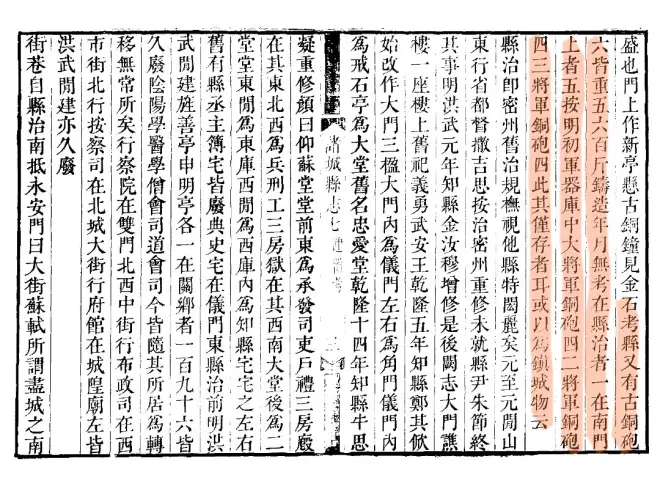 盛也門上作新亭懸古銅鐘見金石考縣又有古銅砲
六皆重五六百斤鑄造年月無考在縣治者一在南門
上者五按明初軍器庫中大將軍銅砲四二將軍銅砲
四三將軍銅砲四此其僅存者耳或以爲鎮城物云
縣治卽密州舊治規橅視他縣特閎麗矣元至元閒山
東行省都督撒吉思按治密州重修未就縣尹朱節終
其事明洪武元年知縣金汝穆增修是後闕志大門譙
樓一座樓上舊祀義勇武安王乾隆五年知縣鄭其
始改作大門三楹大門內爲儀門左右爲角門儀門內
諸城縣志七 三
爲戒石亭爲大堂舊名忠愛堂乾隆十四年知縣牛思
凝重修顏曰仰蘇堂堂前東爲承發司吏戶禮三房廄
在其東北西爲兵刑工三房獄在其西南大堂後爲二
堂堂東閒爲東庫西閒爲西庫內爲知縣宅宅之左右
舊有縣丞主簿宅皆廢典史宅在儀門東縣治前明洪
武閒建旌善亭申明亭各一在關鄉者一百九十六皆
久廢陰陽學醫學僧會司道會司今皆隨其所居爲轉
移無常所矣行察院在雙門北西中街行布政司在西
市街北行按察司在北城大街行府館在城隍廟左皆
洪武閒建亦久廢
街巷自縣治南抵永安門曰大街蘇軾所謂盡城之南